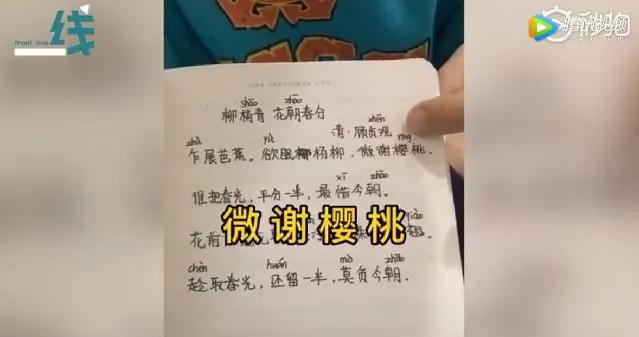 front line
线
腾讯视频
shāo zhāo
柳梢青 花朝春分
zhēn
清·顾贞观
zhà yù yīng
乍展芭蕉。欲眠杨柳，微谢樱桃.
xī zhāo
谁把春光，平分一半，最惜今朝。
花前
微谢樱桃
chèn huán mò zhāo
趁取春光，还留一半，莫负今朝.